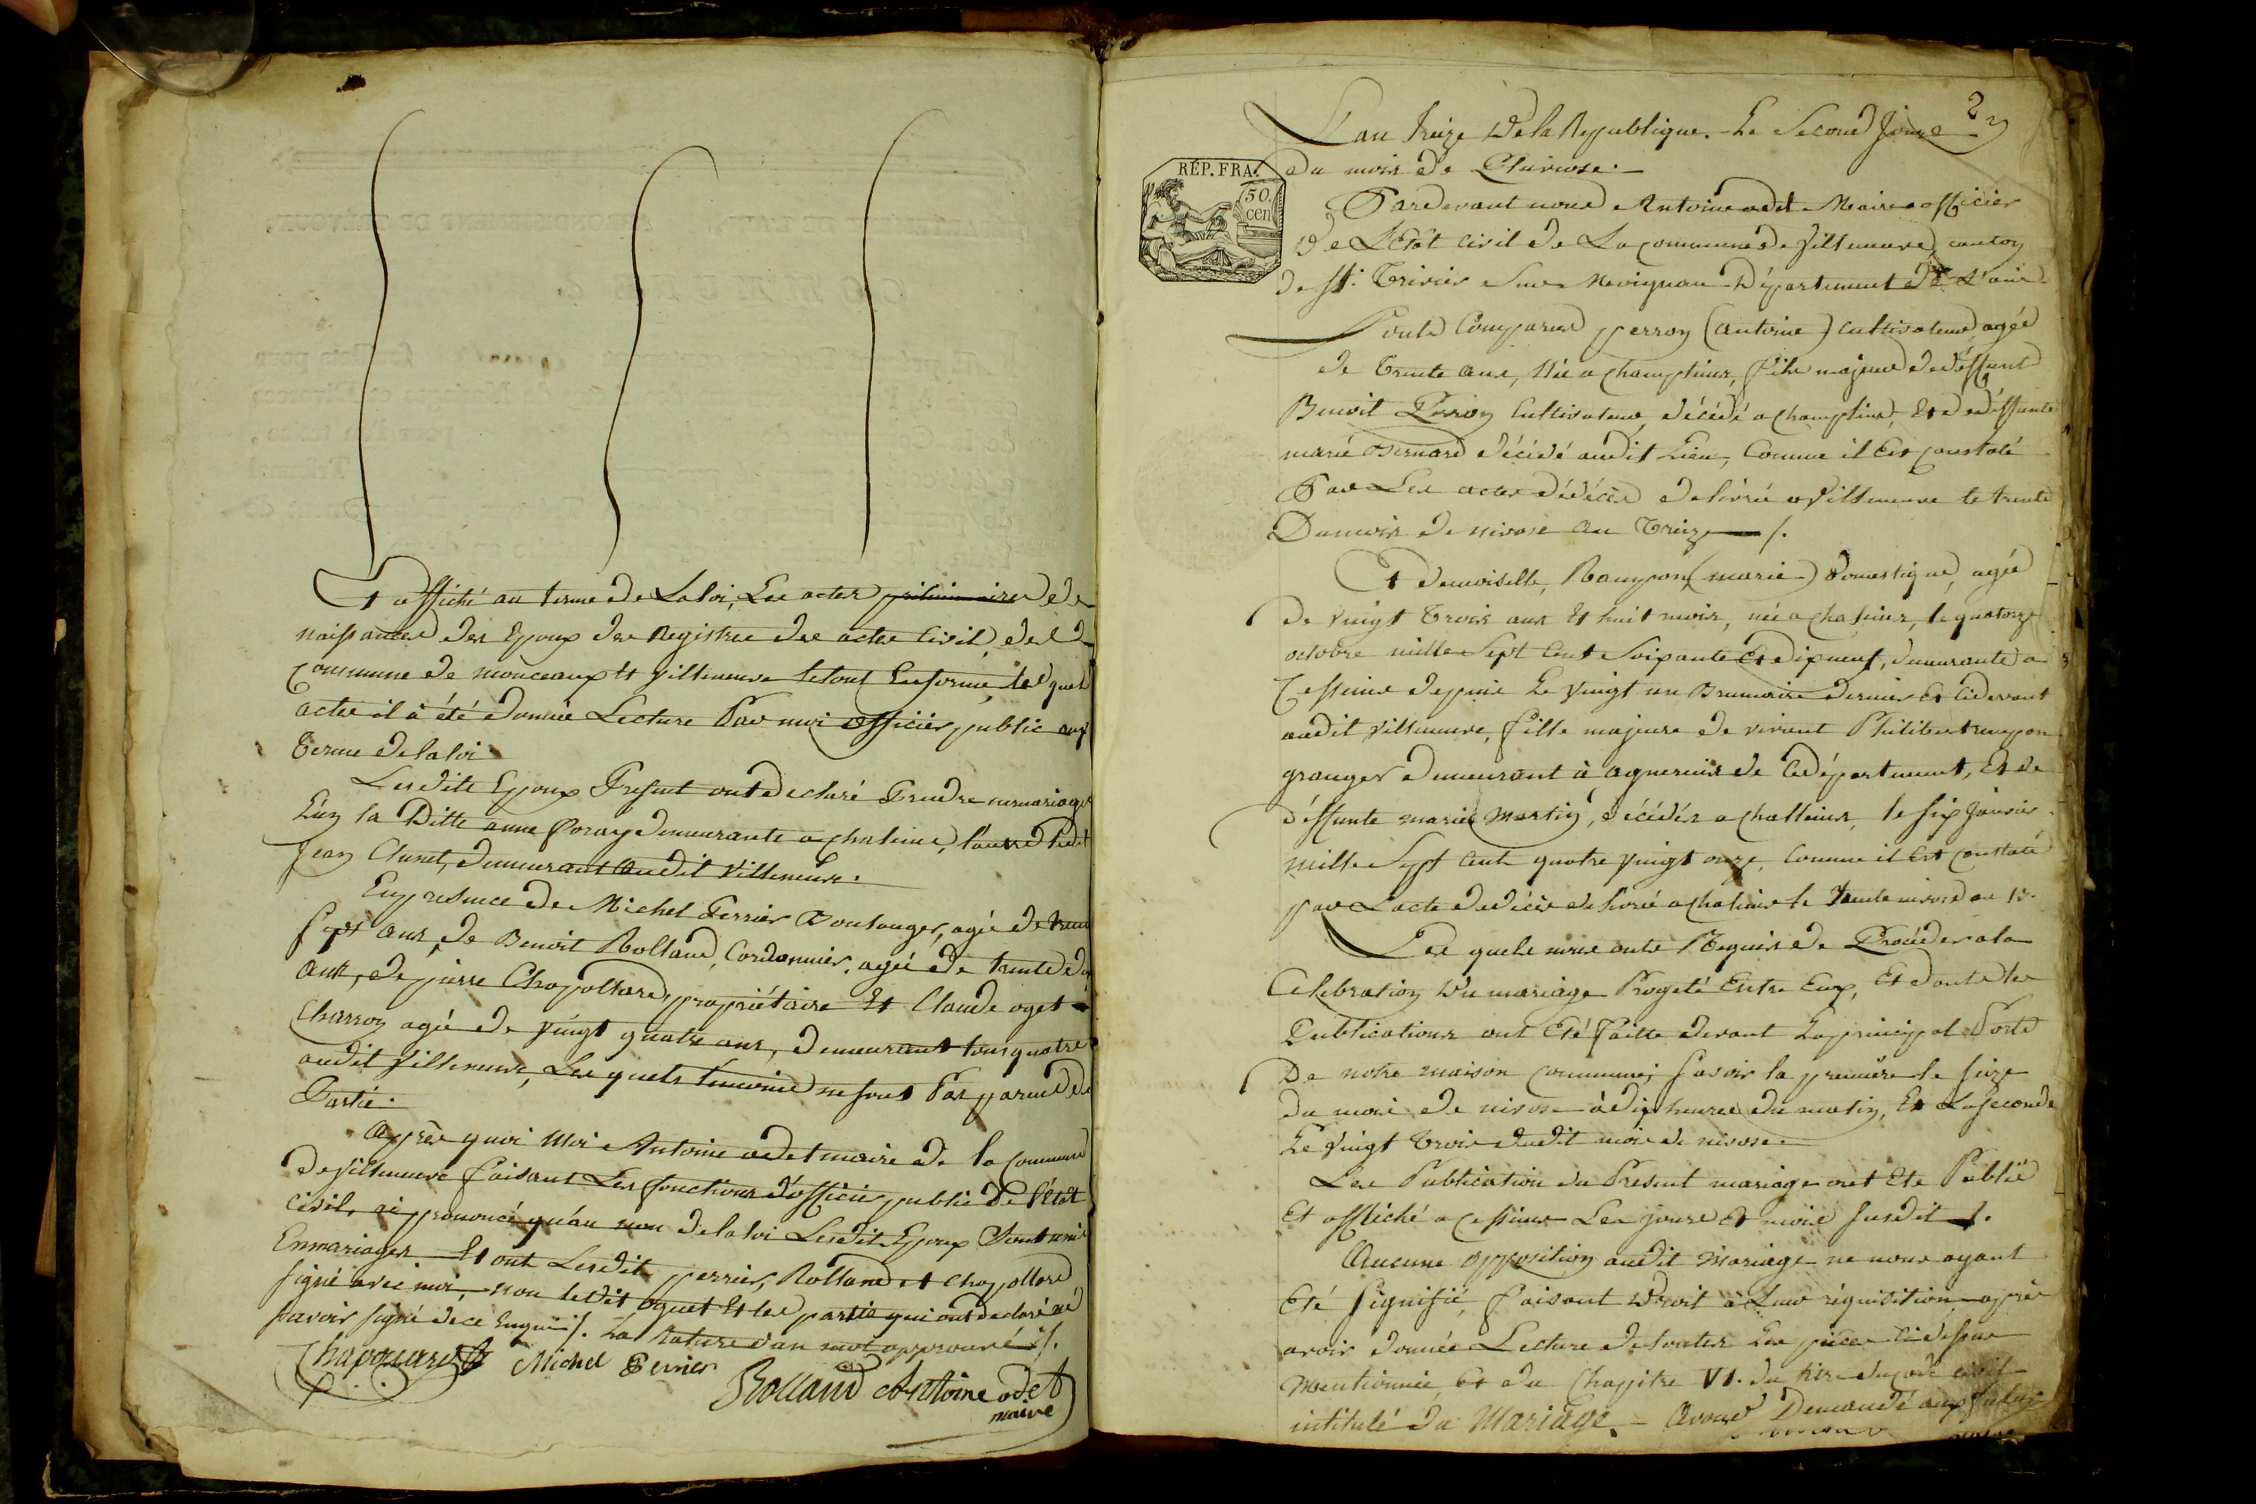 Et affiché au terme de La loi, Les actes préliminaires de de
naissances des Epoux des Registres des actes Civil, de la
Commune de monceaux et Villeneuve le tout En forme, des quels
actes il à été donnée Lecture Par moi officier public aux
terme de la loi
Lesdits Epoux Present ont declaré Prendre en mariage
L'un la Ditte anne demeurante a chaleine, l'autre ledit
Jean Clunet, demeurant audit Villeneuve.
En presence de Michel Perrier Boulanger, agée de trente
sept ans, de Benoit Rolland, Cordonnier, agée de trente
ans, de pierre Chapollard, propriétaire Et Claude oget
Charron agée de vingt quatre ans, demeurant tous quatre
audit Villeneuve, Les quels temoins ne sont Pas parens des
Partie.
Après quoi Moi Antoine odet maire de la Commune
de Villeneuve faisant Les fonctions d'officier public de l'état
civil, ai prononcé qu'au nom de la loi Lesdit Epoux Sont unis
En mariages Et ont Lesdit perrier, Rolland et Chapollard
signé avec moi, non ledit oguet Et les partie qui ont declaré ne
savoir signé de ce Enquis /. La rature d'un mot approuvé /.
Chapouard Michel Perrier
Rolland Antoine odet
maire
2
L'an treize De la Republique. Le Second Jour
du mois de Pluviose.
RÉP. FRA.
50.
cen
Pardevant nous Antoine odet Maire officier
de L'Etat civil de La commune de Villeneuve, canton
de St. Trivier Sur Moignan Département de L'ain
Sont Comparus perron (antoine) Cultivateur, agée
de trente ans, Née a champteins, fils majeur de deffunt
Benoit Perron Cultivateur, décédé a champteins, Et de deffunte
marie Bernard décédé audit Lieu, Comme il Est constaté
Par Les actes dédécès délivrée a Villeneuve le trente
Du mois de nivose an treize /.
Et demoiselle, Rampon (marie) Domestique, agée
de vingt trois ans Et huit mois, née a chaleins, le quatorze
octobre mille Sept Cent Soixante Et dixneuf, demeurante a
Cesseins depuis Le vingt un Brumaire dernier Et cidevant
audit Villeneuve, fille majeure de vivant Philibert rempon
granger demeurant à agnereins de Cedépartement, Et de
déffunte marie Martin, décédée a challeins, le six janvier
mille Sept Cent quatre vingt onze, Comme il Est constaté
par L'acte dedécès delivrée a chaleins le trente nivose an 13.
Les quels nous ont Requis de Procéder a la
Celebration Du mariage Progeté Entre Eux, Et dont les
Publications ont Eté faitte devant La principal Porte
De notre maison commune; savoir la première le seize
du mois de nivose à dix heures du matin, Et La seconde
Le vingt trois dudit mois de nivose.
Les Publication du Present mariage ont Eté Publié
Et affiché a cesseins Les jours Et mois susdit /.
Aucune opposition audit Mariage ne nous ayant
Eté signifié, faisant Droit à Leur réquisition, après
avoir donnée Lecture de toutes Les pièces cidessus
Mentionnée, Et du Chapitre VI. du titre du code civil
intitulé du Mariage. – Avons Demandé aux futur